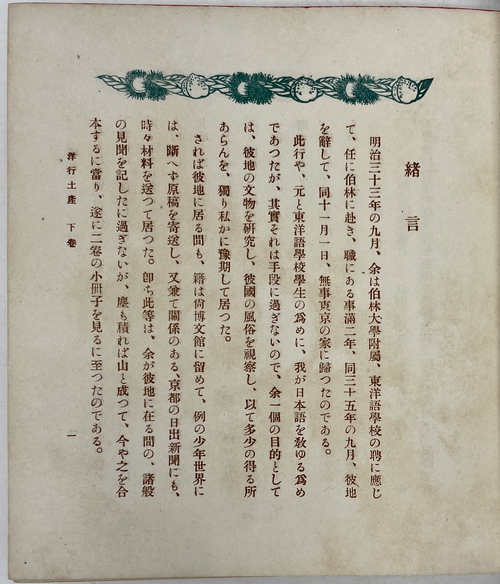 緒言
明治三十三年の九月、余は伯林大學附屬、東洋語學校の聘に應じ
て、任に伯林に赴き、職にある事滿二年、同三十五年の九月、彼地
を辭して、同十一月一日、無事東京の家に歸つたのである。
此行や、元と東洋語學校學生の爲めに、我が日本語を敎ゆる爲め
であつたが、其實それは手段に過ぎないので、余一個の目的として
は、彼地の文物を硏究し、彼國の風俗を視察し、以て多少の得る所
あらんを、獨り私かに豫期して居つた。
されば彼地に居る間も、籍は尙博文館に留めて、例の少年世界に
は、斷へず原稿を寄送し、又兼て關係のある、京都の日出新聞にも、
時々材料を送つて居つた。卽ち此等は、余が彼地に在る間の、諸般
の見聞を記したに過ぎないが、塵も積れば山と成つて、今や之を合
本するに當り、遂に二卷の小冊子を見るに至つたのである。
洋行土產 下卷
一